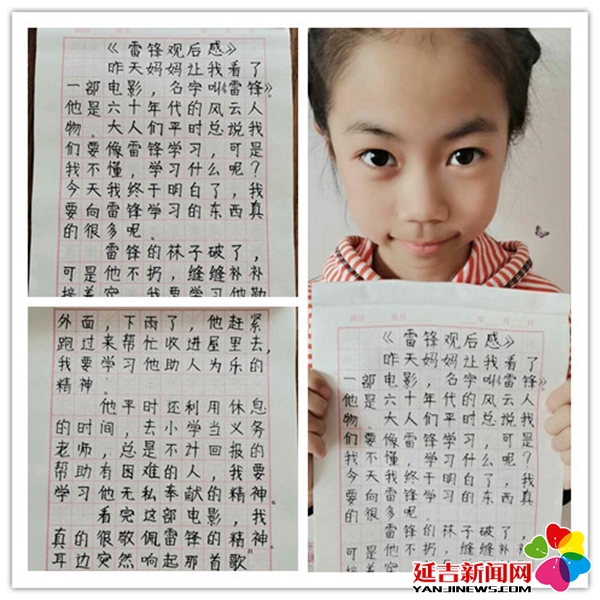 《雷锋观后感》
昨天妈妈让我看了
一部电影，名字叫《雷锋》。
他是六十年代的风云人
物。大人们平时总说我
们要像雷锋学习，可是
我不懂，学习什么呢？
今天我终于明白了，我
要向雷锋学习的东西真
的很多呢。
雷锋的袜子破了，
可是他不扔，缝缝补补
接着穿。我要学习他勤
外面，下雨了，他赶紧
跑过来帮忙收进屋里去，
我要学习他助人为乐的
精神。
他平时还利用休息
的时间，去小学当义务
老师，总是不计回报的
帮助有困难的人，我要
学习他无私奉献的精神。
看完这部电影，我
真的很敬佩雷锋的精神。
耳边突然响起那首歌
《雷锋观后感》
昨天妈妈让我看了
一部电影，名字叫《雷锋》
他是六十年代的风云人
物。大人们平时总说我
们要像雷锋学习，可是
我不懂，学习什么呢？
今天我终于明白了，我
要向雷锋学习的东西真
的很多呢。
雷锋的袜子破了，
可是他不扔，缝缝补补
延吉新闻网
YANJINEWS.COM